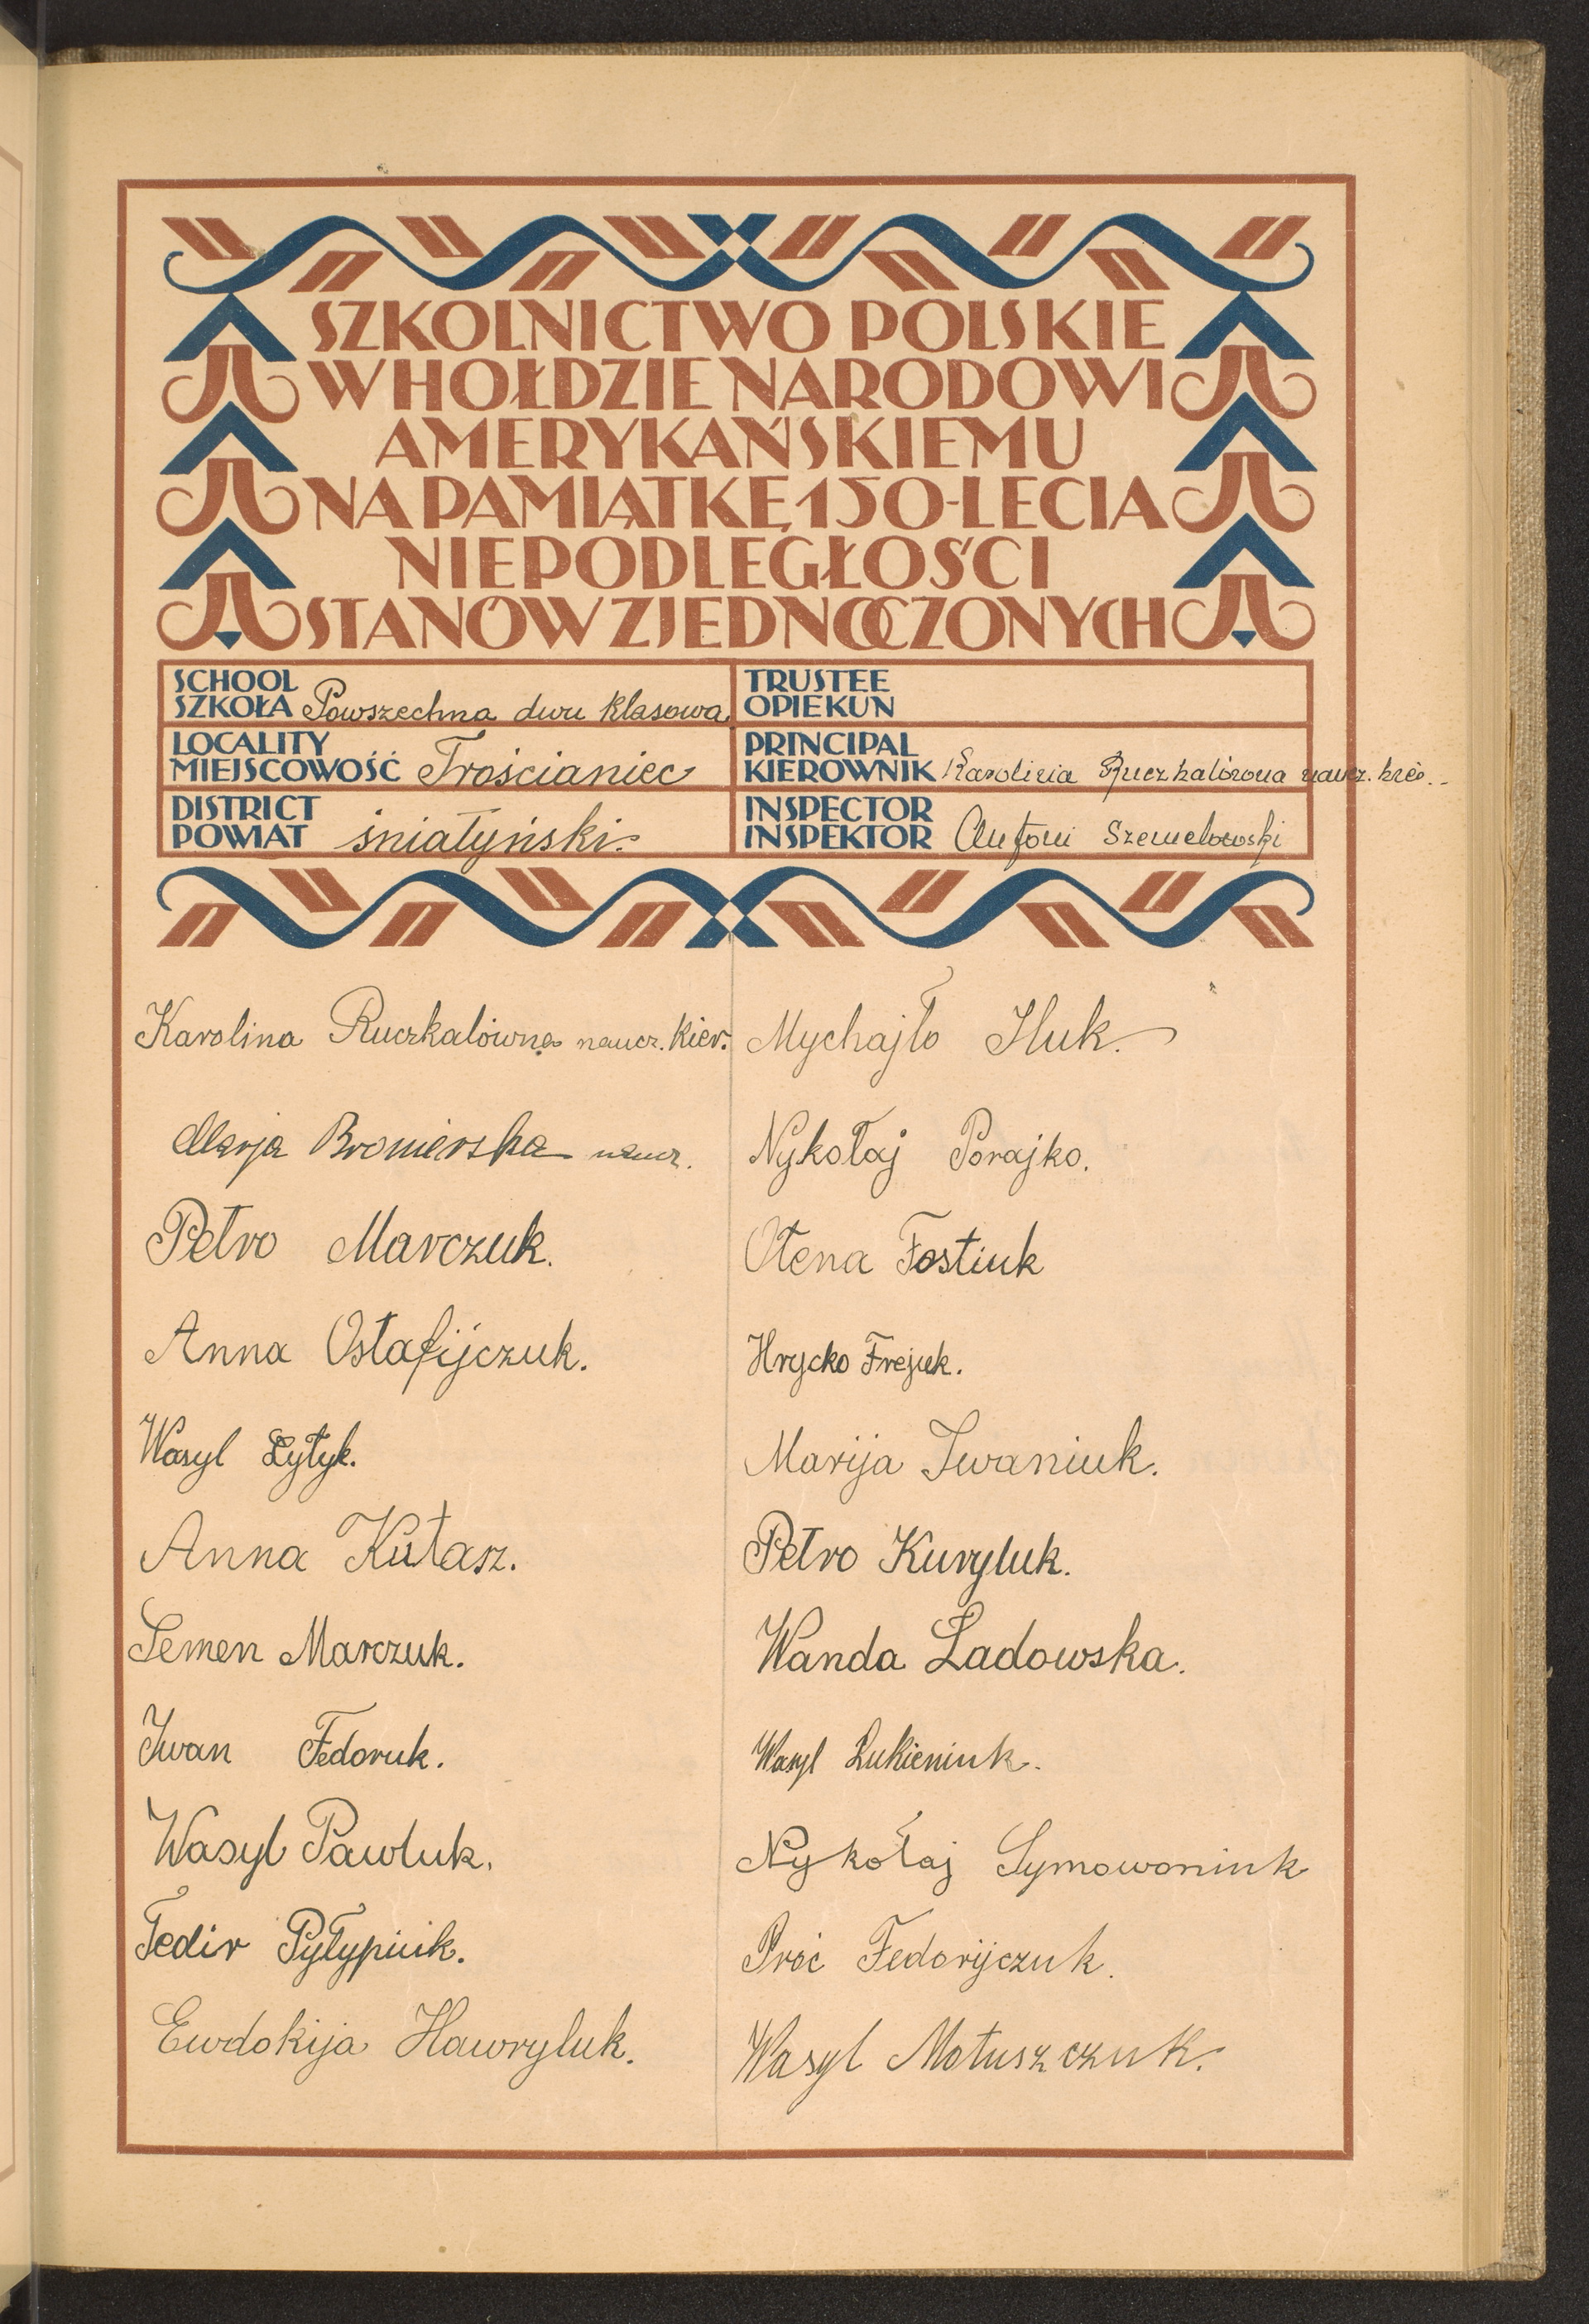 SZKOLNICTWO POLSKIE
W HOŁDZIE NARODOWI
AMERYKAŃSKIEMU
NA PAMIĄTKĘ 150-LECIA
NIEPODLEGŁOŚCI
STANÓW ZJEDNOCZONYCH
SCHOOL
SZKOŁA Powszechna dwu klasowa
TRUSTEE
OPIEKUN
LOCALITY
MIEJSCOWOŚĆ Trościaniec
PRINCIPAL
KIEROWNIK Karolina Ruczkalówna naucz. kier.
DISTRICT
POWIAT śniatyński.
INSPECTOR
INSPEKTOR Antoni Szemelowski
Karolina Ruczkalówna naucz. kier.
Marja Bronierska naucz.
Petro Marczuk.
Anna Ostafijczuk.
Wasyl Łytyk.
Anna Kułasz.
Semen Marczuk.
Iwan Fedoruk.
Wasyl Pawluk.
Fedir Pyłypiuk.
Ewdokija Hawryluk.
Mychajło Iluk.
Nykołaj Porajko.
Ołena Fostiuk
Hrycko Frejuk.
Marija Iwaniuk.
Petro Kuryluk.
Wanda Ladowska.
Wasyl Łukieniuk.
Nykołaj Symowoniuk
Proć Fedorijczuk.
Wasyl Motuszczuk.